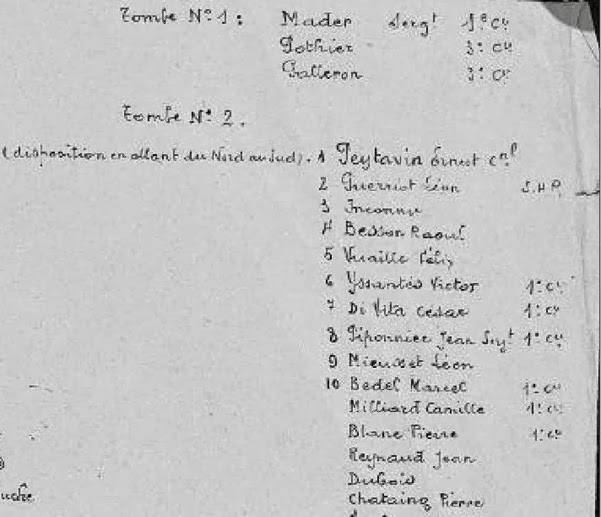 Tombe N° 1 : Mader Sergt 1e Cie
Pothier 3e Cie
Galleron 3e Cie
Tombe N° 2.
(disposition en allant du Nord au Sud). 1 Peytavin Ernest cal
2 Guerriot Léon S.H.R.
3 Inconnu
4 Besson Raoul
5 Vuaille Félix
6 Yssantés Victor 1e Cie
7 Di Vita César 1e Cie
8 Piponnier Jean Sergt 1e Cie
9 Mieusset Léon
10 Bedel Marcel 1e Cie
Milliard Camille 1e Cie
Blanc Pierre 1e Cie
Reynaud Jean
Dubois
uche Chataing Pierre